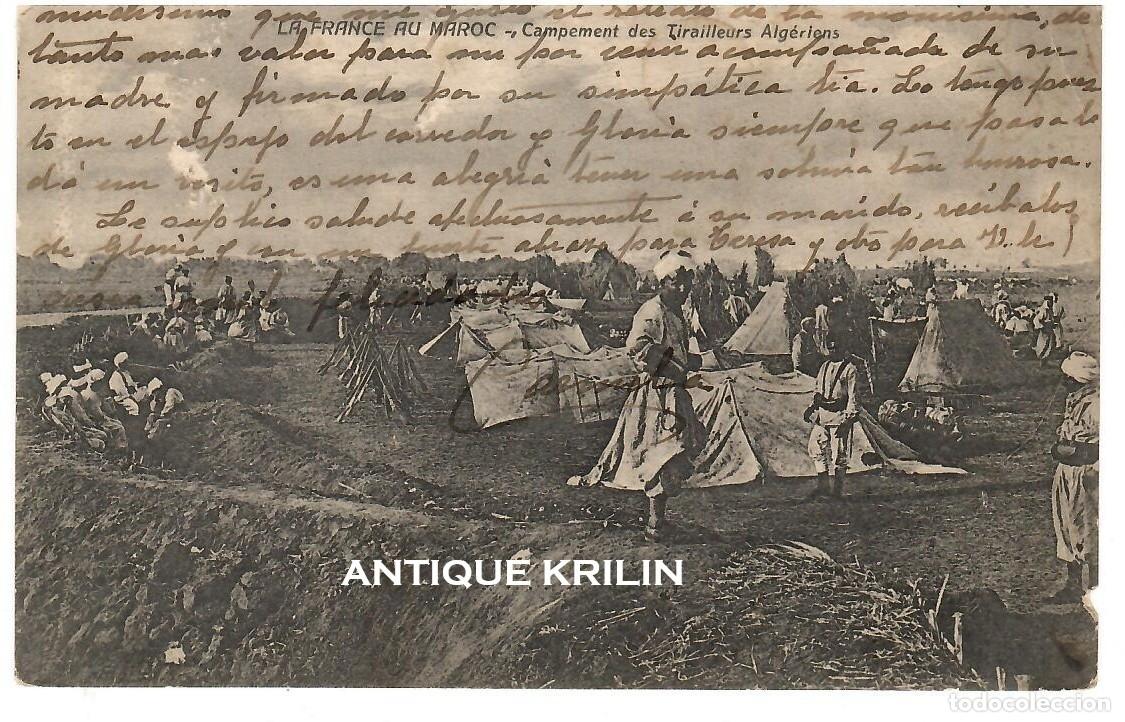 muchísimo que me gustó el retrato de la monísima, de
LA FRANCE AU MAROC -, Campement des Tirailleurs Algériens
tanto mas valor para mi por venir acompañada de su
madre y firmado por su simpática tia. Lo tengo pues
to en el espejo del corredor y Gloria siempre que pasa le
dá un besito, es una alegria tener una sobrina tan hermosa.
Le suplico salude afectuosamente á su marido, recíbalos
de Gloria y un fuerte abrazo para Teresa y otro para V. de
felicidades
ANTIQUE KRILIN
todocoleccion